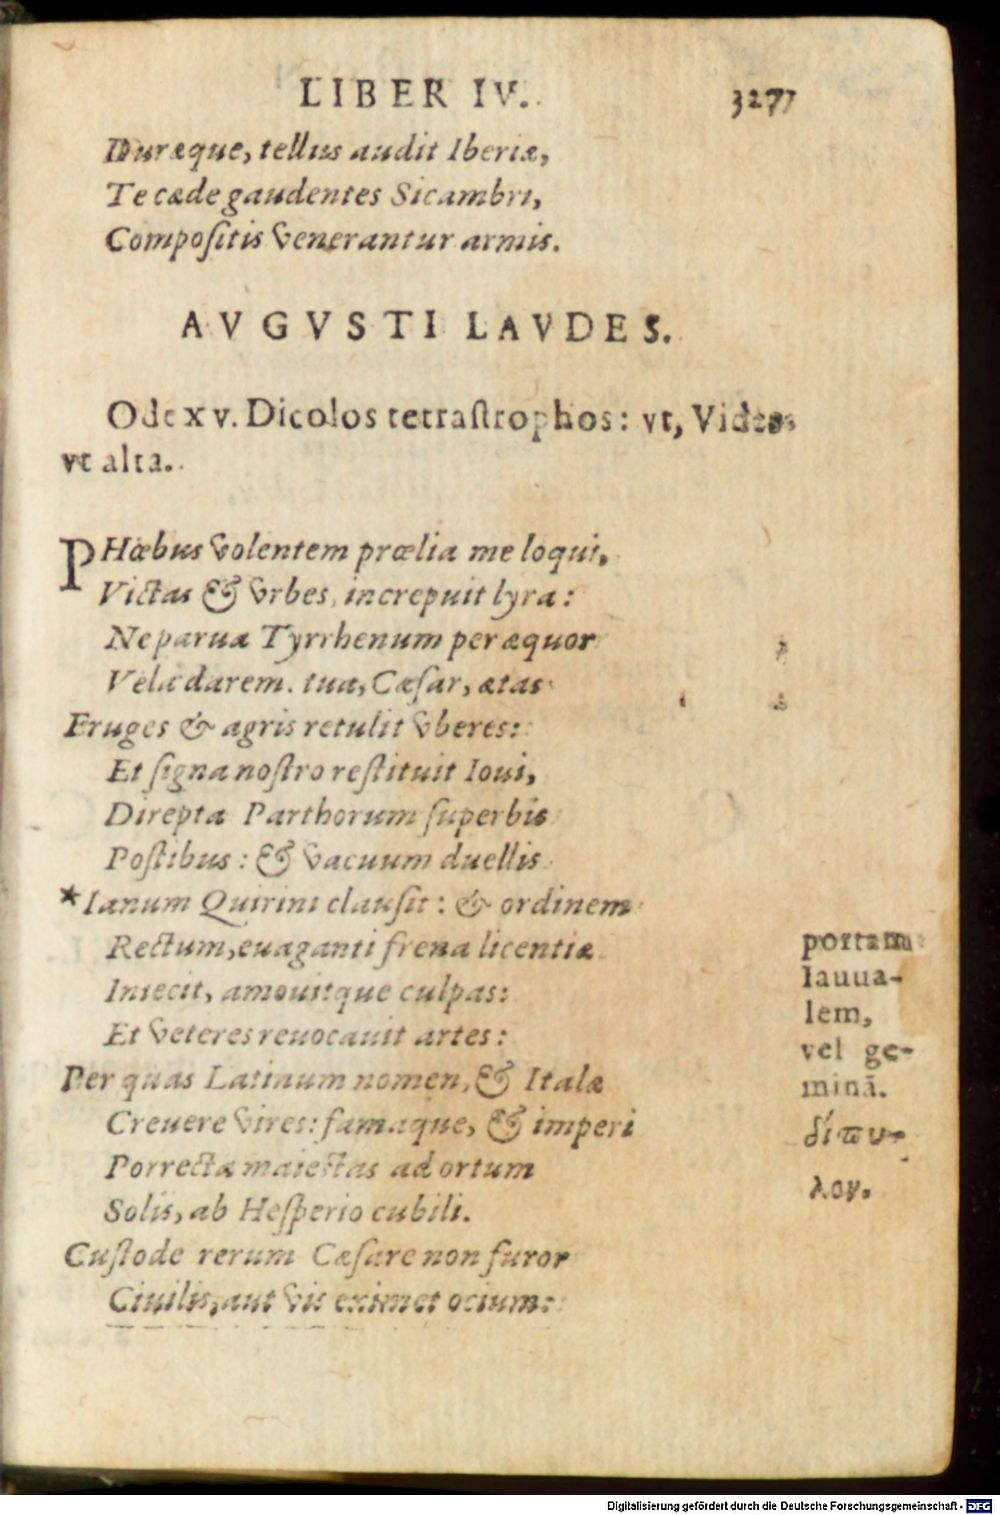 LIBER IV.
327
Duræque, tellus audit Iberiæ,
Te cæde gaudentes Sicambri,
Compoſitis venerantur armis.
AVGVSTI LAVDES.
Ode xv. Dicolos tetraſtrophos: vt, Vides
vt alta.
PHœbus volentem prœlia me loqui,
Victas & vrbes, increpuit lyra:
Ne parua Tyrrhenum per æquor
Vela darem. tua, Cæſar, ætas
Fruges & agris retulit vberes:
Et ſigna noſtro reſtituit Ioui,
Direpta Parthorum ſuperbis
Poſtibus: & vacuum duellis
*Ianum Quirini clauſit: & ordinem
Rectum, euaganti frena licentiæ
Iniecit, amouitque culpas:
Et veteres reuocauit artes:
Per quas Latinum nomen, & Italæ
Creuere vires: famaque, & imperi
Porrecta maieſtas ad ortum
Solis, ab Heſperio cubili.
Cuſtode rerum Cæſare non furor
Ciuilis, aut vis eximet ocium:
portam
Iauua-
lem,
vel ge-
minā.
δίπυ-
λον.
Digitalisierung gefördert durch die Deutsche Forschungsgemeinschaft - DFG